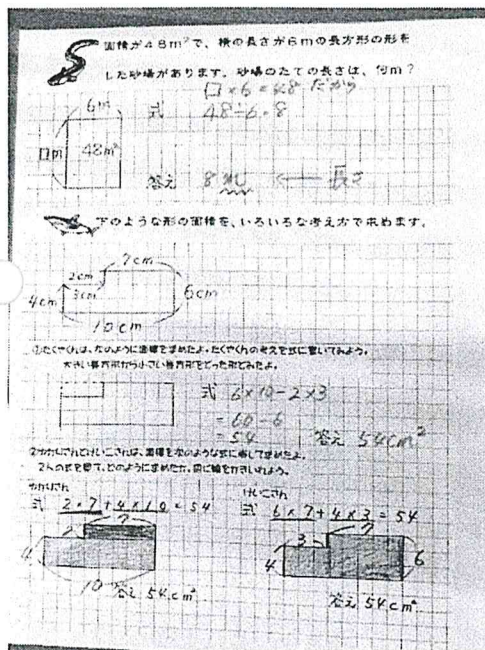 面積が48m²で、横の長さが6mの長方形の形を
した砂場があります。砂場のたての長さは、何m？
□×6=48 だから
6m
式 48÷6=8
□m
48m²
答え 8m ← 長さ
下のような形の面積を、いろいろな考え方で求めます。
7cm
2cm
4cm
3cm
6cm
10cm
①たくやくんは、次のように面積を求めたよ。たくやくんの考えを式に書いてみよう。
大きい長方形から小さい長方形をとった形とみたよ。
式 6×10-2×3
=60-6
=54
答え 54cm²
2人の式を見て、どのように求めたか、図に線をかきいれよう。
けいこさん
式 2×7+4×10=54
式 6×7+4×3=54
7
2
4
10
答え 54cm²
7
3
4
6
答え 54cm²